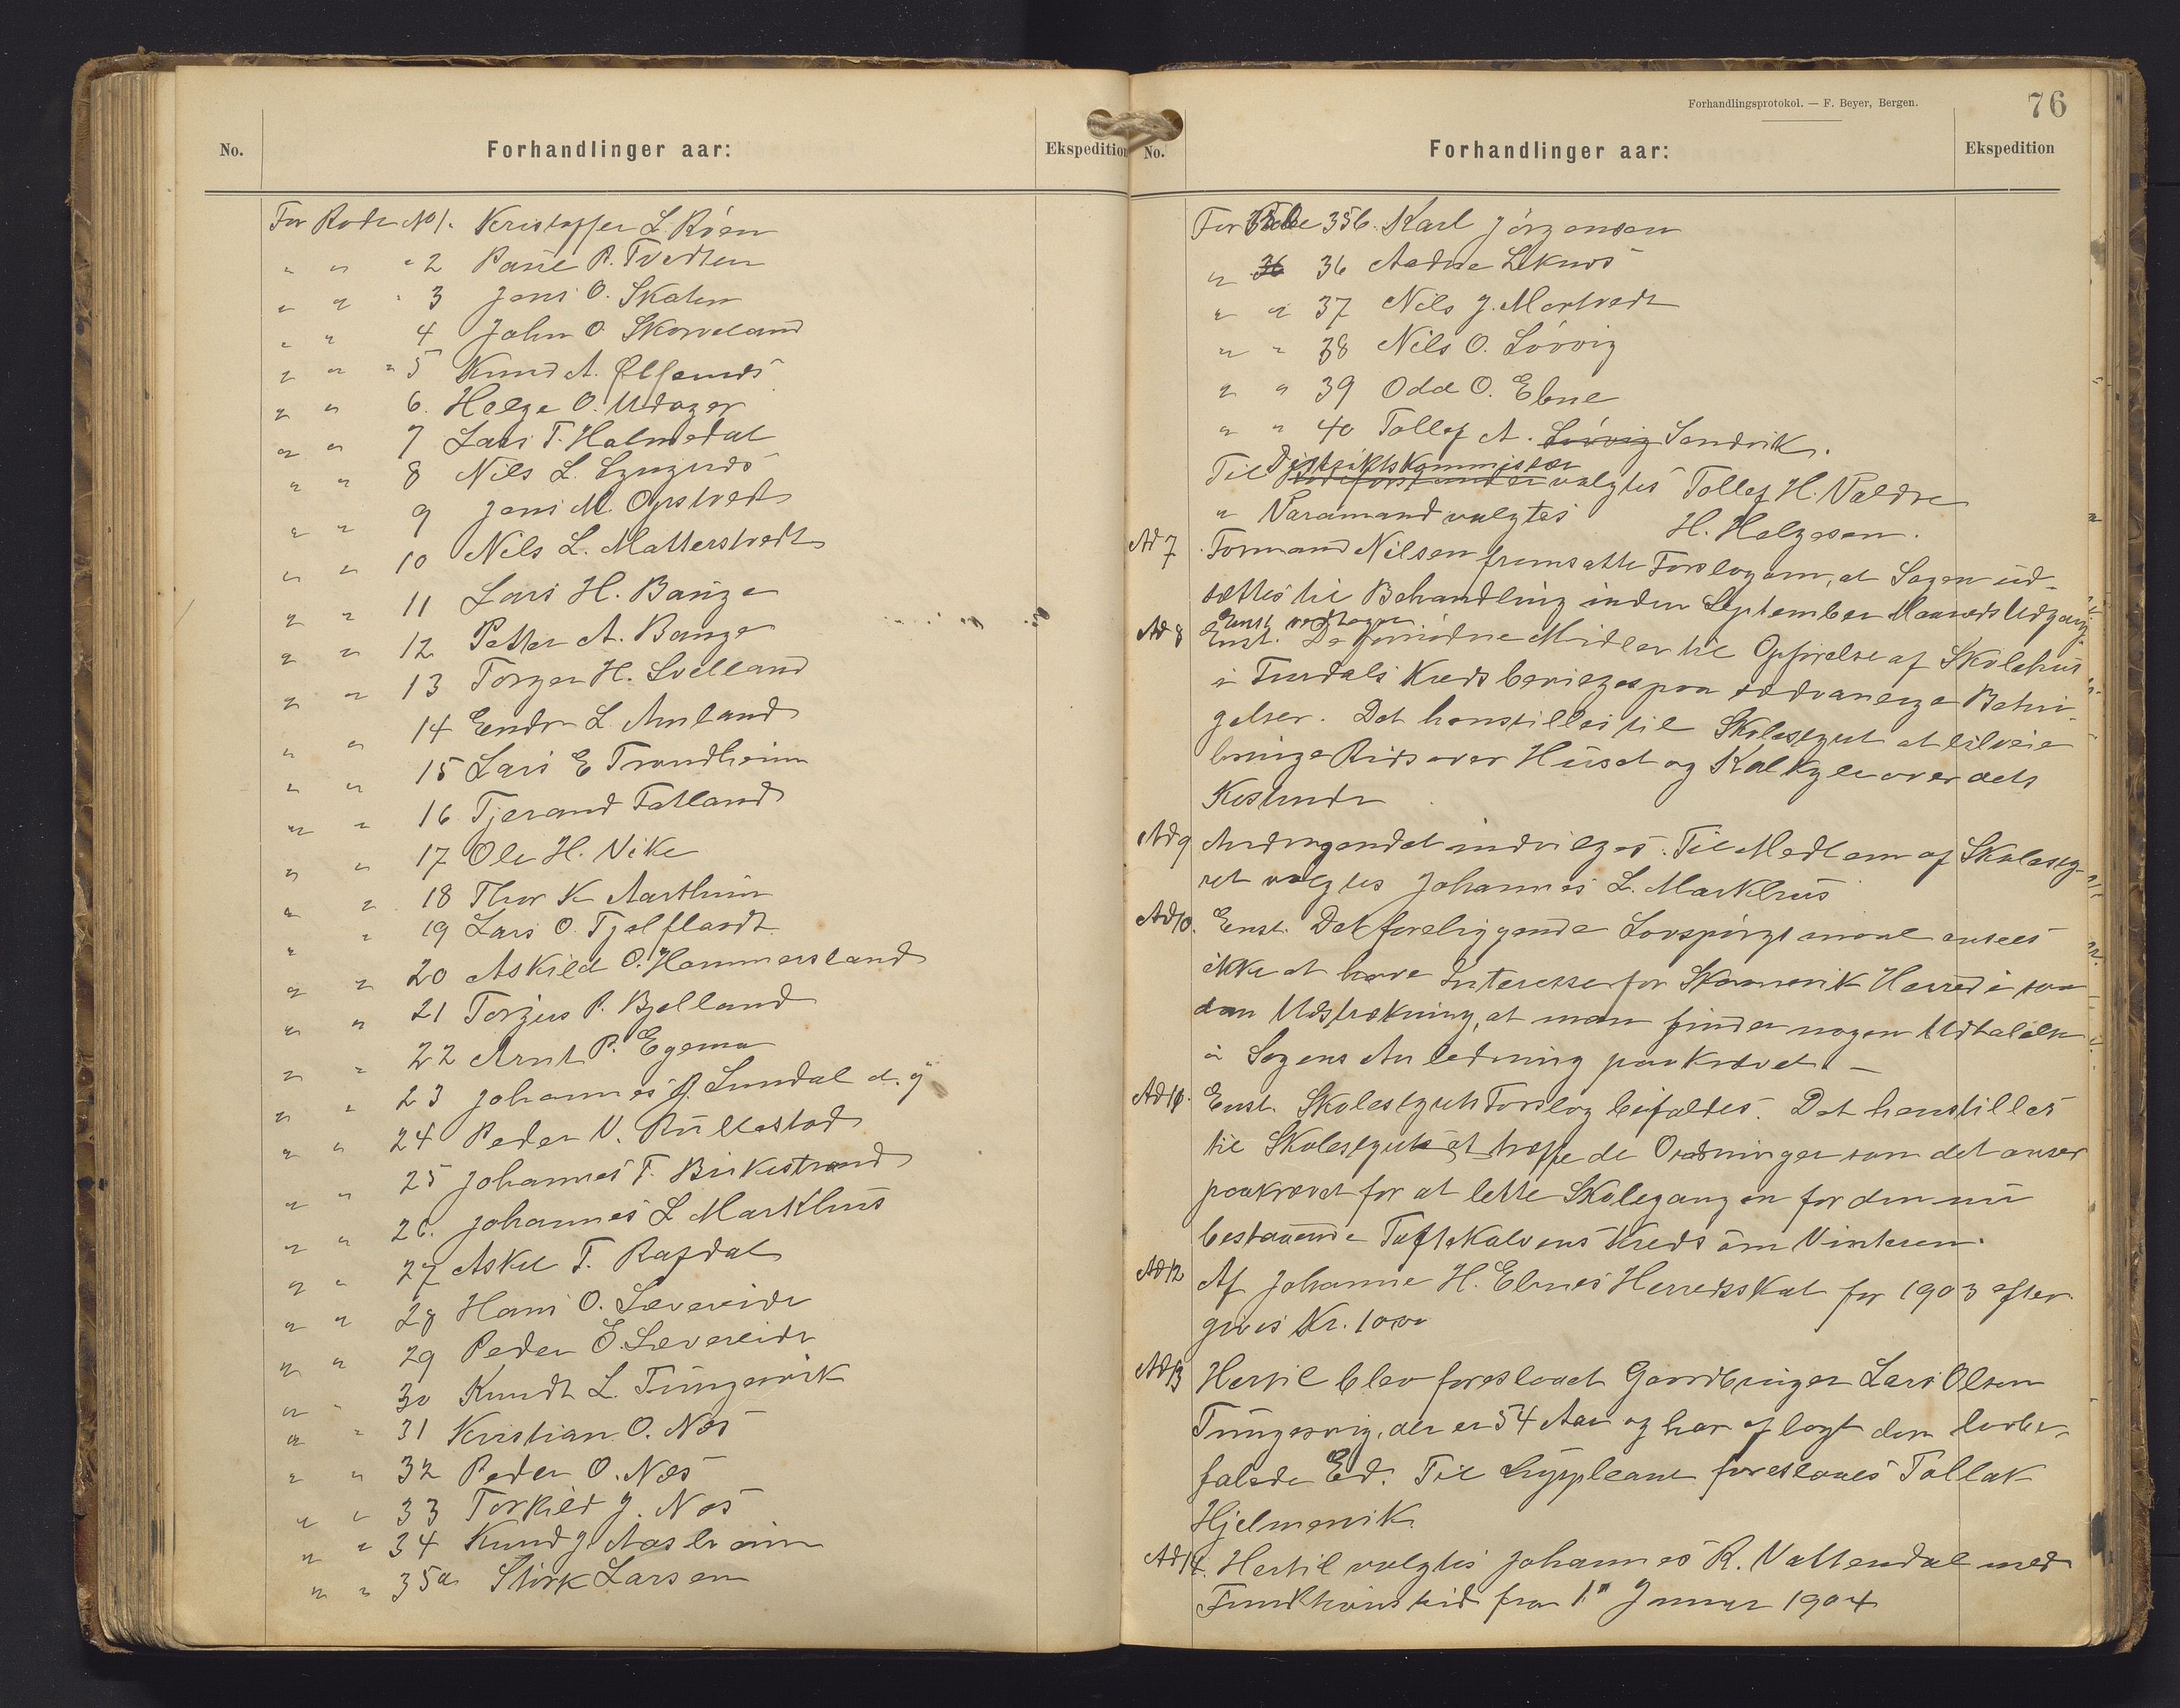 No.
Forhandlinger aar:
Ekspedition
For Rode No 1. Kristoffer L. Röen
" " " 2 Paul P. Tvedten
" " " 3 Jens O. Skaten
" " 4 John O. Skorveland
" " " 5 Knud A. Ølfernæs
" " 6. Helge O. Udager
" " 7 Lars T. Holmedal
" " 8 Nils L. Lyngnæs
" " 9 Jens M. Opstvedt
" " 10 Nils L. Matterstvedt
" " 11 Lars H. Bauge
" " 12 Petter A. Bauge
" " 13 Torger H. Svelland
" " 14 Endre L. Amland
" " 15 Lars E Trondheim
" " 16 Tjerand Fatland
" " 17 Ole H. Vike
" " 18 Thor K Aarthun
" " 19 Lars O. Tjelflaadt
" " 20 Askild O. Hammersland
" " 21 Torgius P. Bjelland
" " 22 Arnt P. Egema
" " 23 Johannes J. Sundal d. y
" " 24 Peder V. Rullestad
" " 25 Johannes T. Birkestrand
" " 26. Johannes L Markhus
" " 27 Askil T. Rafdal
" " 28 Hans O. Lævereide
" " 29 Peder E. Lævereide
" " 30 Knudt L. Tungesvik
" " 31 Kristian O. Næs
" " 32 Peder O. Næs
" " 33 Torkild J. Næs
" " 34 Knud J Aasheim
" " 35a Störk Larsen
Forhandlingsprotokol. — F. Beyer, Bergen.
76
No.
Forhandlinger aar:
Ekspedition
For Rode 35b. Karl Jörgensen
" 36 36 Aadne Leknæs
" " 37 Nils J. Mortvedt
" " 38 Nils O. Lövvig
" " 39 Odd O. Ebne
" " 40 Tollef A. Lövvig Sandvik.
Distriktskommissær
Til Rodeforstander valgtes Tollef H. Valdre
" Varamand valgtes H. Helgesen.
Ad 7 Formand Nilsen fremsatte Forslag om, at Sagen ud-
sættes til Behandling inden September Maaneds Udgang.
Enst vedtagen
Ad 8 Enst. De fornödne Midler til Opförelse af Skolehus
i Tundals Kreds bevilges paa sædvanlige Betin-
gelser. Det henstilles til Skolestyret at tilveie-
bringe Rids over Huset og Kalkyle over dets
Kostende
Ad 9 Andragendet indvilges. Til Medlem af Skolesty-
ret valgtes Johannes L. Markhus
Ad 10. Enst. Det foreliggende Lovspörgsmaal ansees
ikke at have Interesse for Skaanevik Herred i saa-
dan Udstrækning, at man finder nogen Udtalelse
i Sagens Anledning paakrævet. —
Ad 11. Enst. Skolestyrets Forslag bifaldes. Det henstilles
til Skolestyret at træffe de Ordninger som det anser
paakrævet for at lette Skolegangen for den nu
bestaaende Toftekalvens Kreds om Vinteren.
Ad 12 Af Johanne H. Ebnes Herredsskat for 1903 efter-
gives Kr. 10.00
Ad 13 Hertil blev foreslaaet Gaardbruger Lars Olsen
Tungesvig, der er 54 Aar og har aflagt den lovbe-
falede Ed. Til Suppleant foreslaaes Tollak
Hjelmevik.
Ad 14. Hertil valgtes Johannes R. Vattendal med
Funktionstid fra 1. Januar 1904